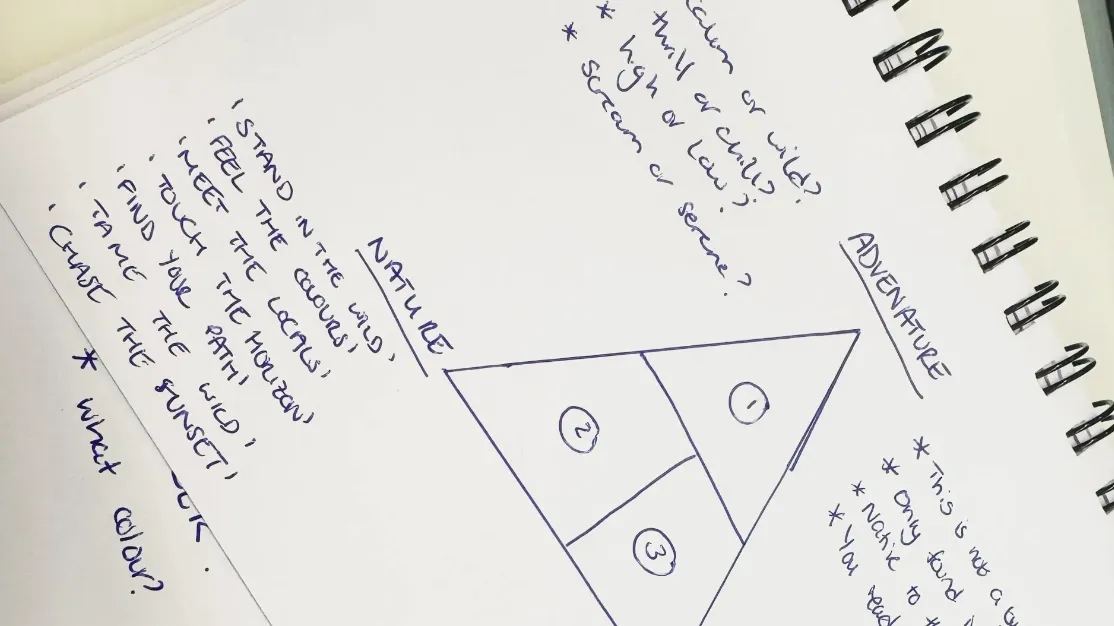 calm or wild?
thrill or chill?
* high or Low?
* scream or serene?
ADVENATURE
NATURE
'STAND IN THE WILD'
'FEEL THE COLOURS'
'MEET THE LOCALS'
'TOUCH THE HORIZON'
'FIND YOUR PATH'
'TAME THE WILD'
'CHASE THE SUNSET'
* what colour?
1
2
3
* This is not a
* Only found
* Native to
* You